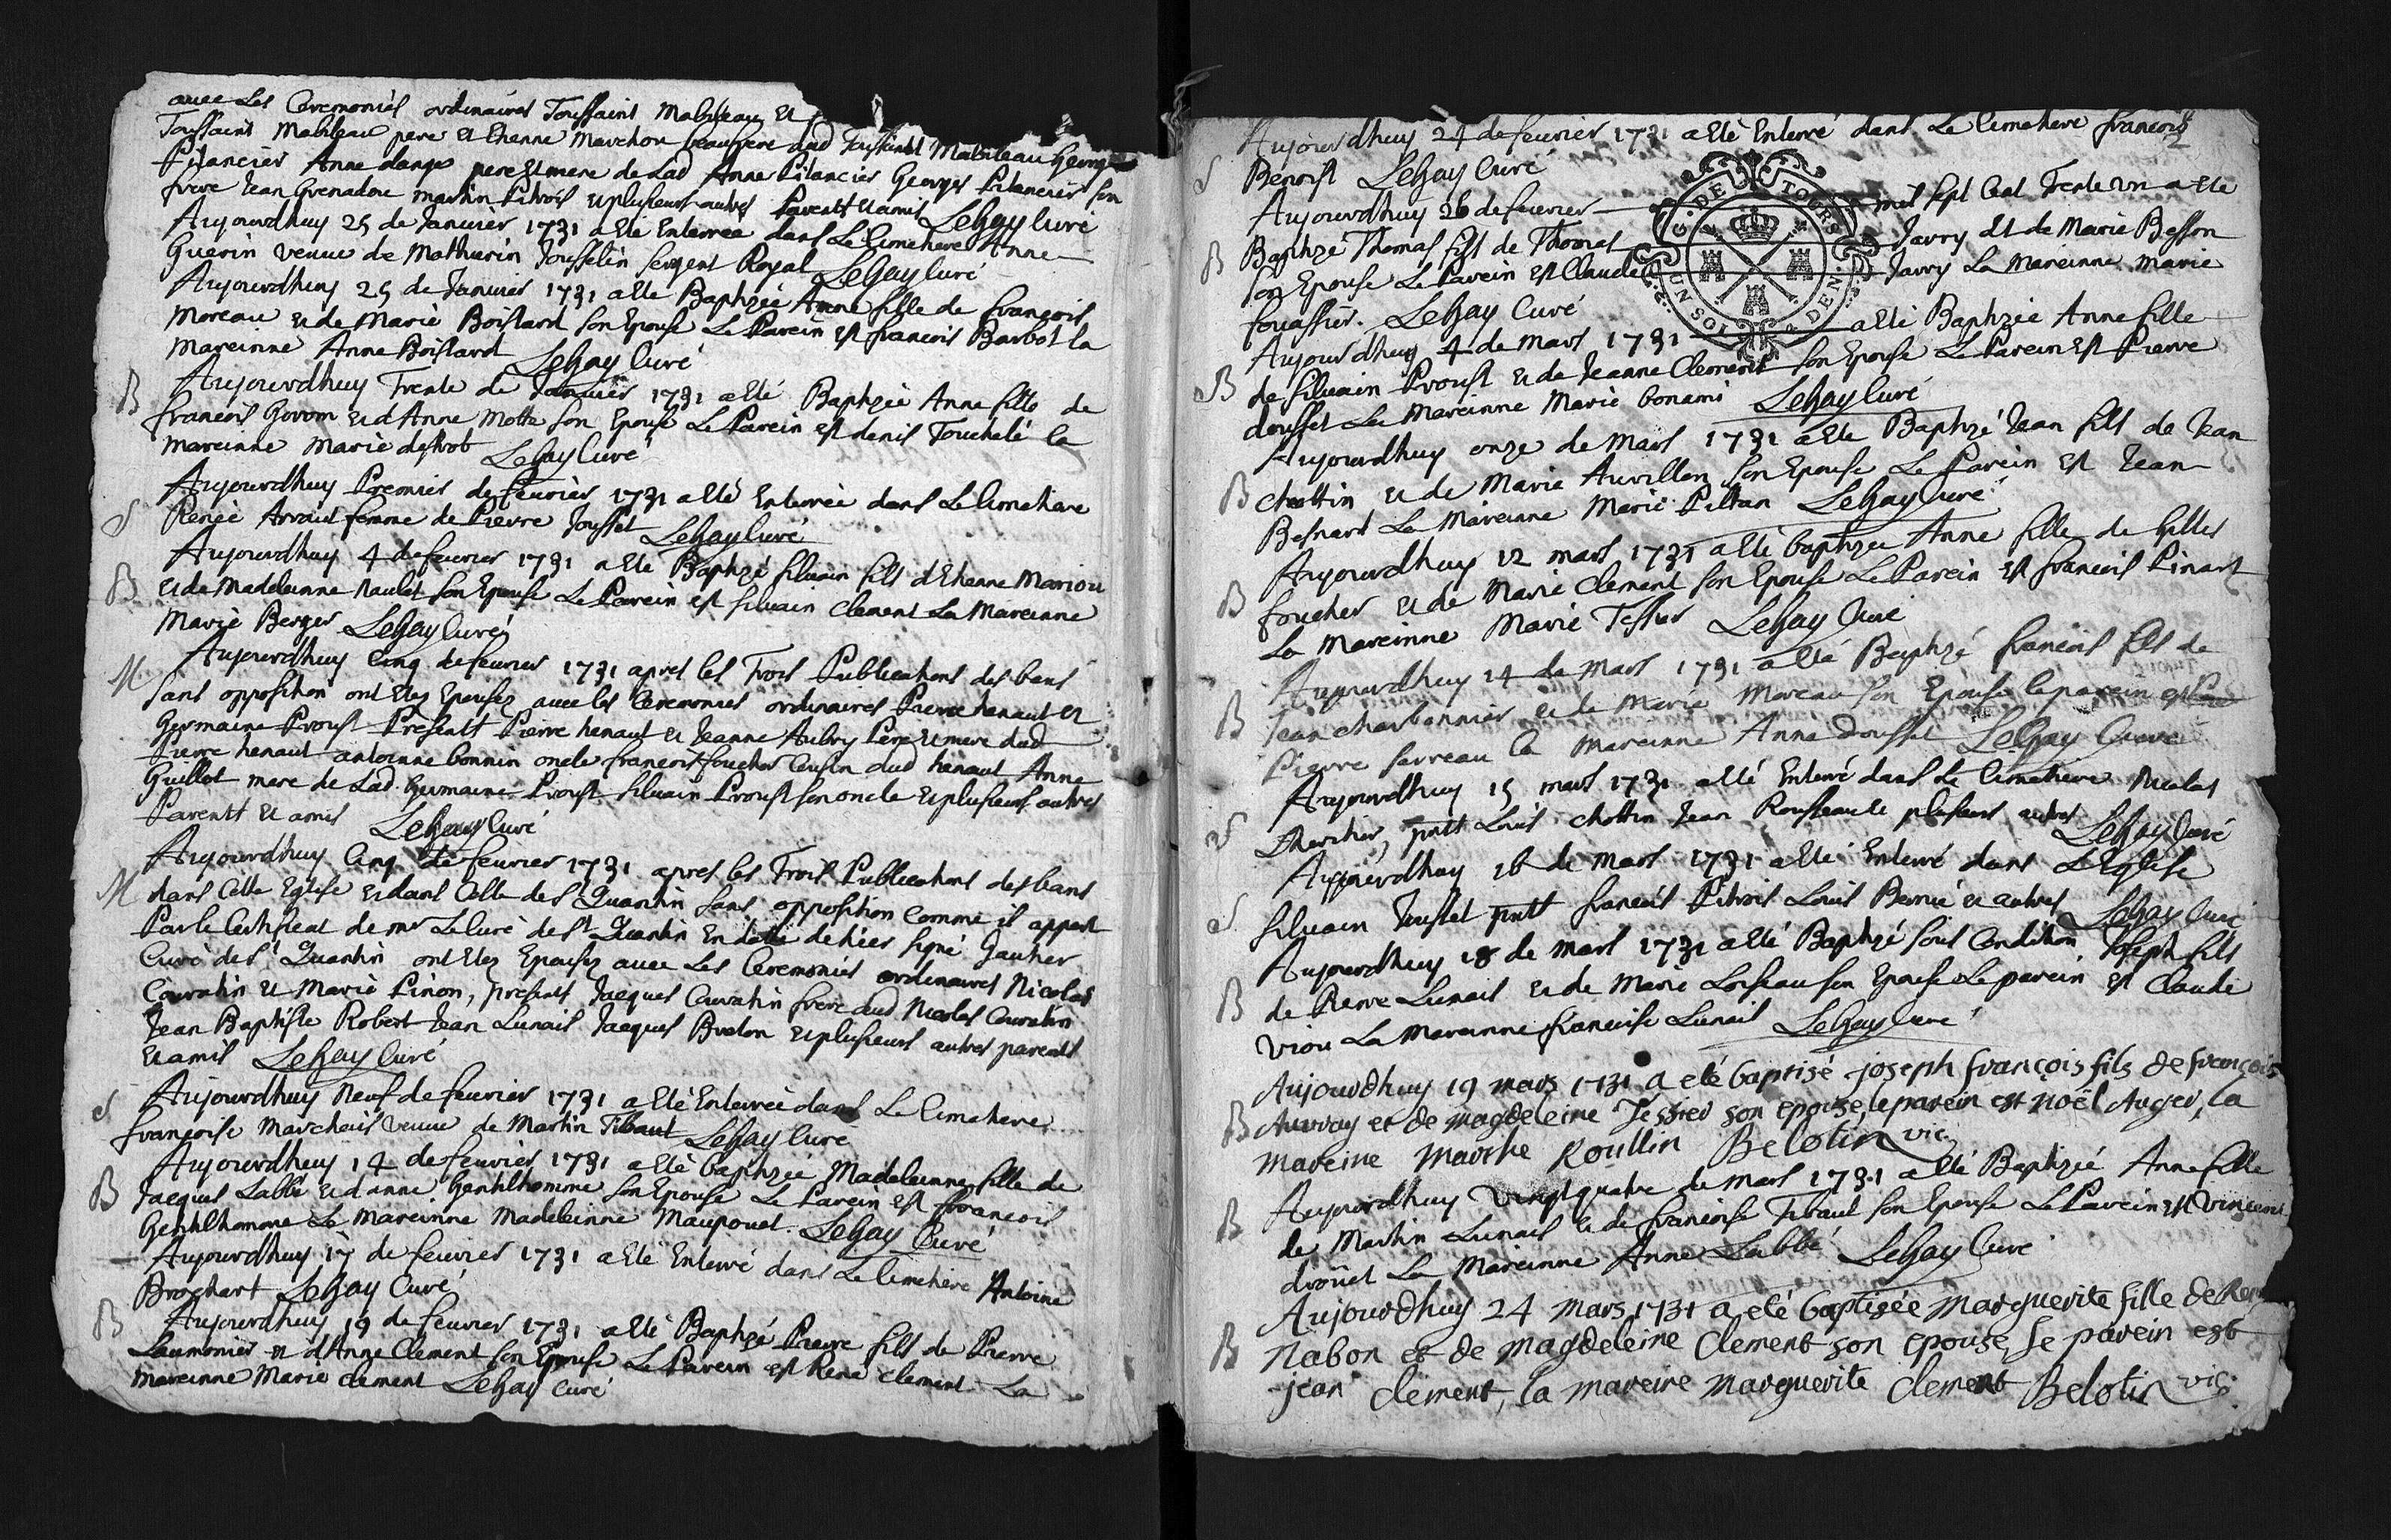 avec Les Ceremoniës ordinaires Toussaint Mabileau Et
Toussaint Mabileau pere Et Etienne Marchou beaufrere dud Toussaint Mabileau George
Pitancier Anne danger pere Et mere de Lad Anne Pitancier Georges Pitancier son
frere Jean Grenadou martin Pitrois Et plusieurs autres Parentt Et amis LeHay Curé
Aujourdhuy 25 de Janvier 1731 a Eté Enterree dans Le Cimetiere Anne
Guerin veuve de Mathurin Jousselin sergent Royal LeHay Curé
Aujourdhuy 25 de Janvier 1731 a Eté Baptizée Anne fille de francois
Moreau Et de Marie Boistard son Epouse Le Parein est francois Barbot la
Mareinne Anne Boistard LeHay Curé
B Aujourdhuy Trente de Janvier 1731 a Eté Baptizée Anne fille de
francois Govom Et d'Anne Motte son Epouse Le Parein est denis Touchelé la
mareinne Marie LeHay Curé
Aujourdhuy Premier de fevrier 1731 a Eté Enterrée dans Le Cimetiere
S Renée femme de Pierre Jousset LeHay Curé
Aujourdhuy 4 de fevrier 1731 a Eté Baptizé silvain fils d'Etienne Mariou
B Et de Madeleinne naulet son Epouse Le Parein est silvain Clement La Mareinne
Marie Berger LeHay Curé
M Aujourdhuy Cinq de fevrier 1731 apres les Trois Publications des bans
sans opposition ont Etez Epousez avec les Ceremonies ordinaires Pierre henaut Et
Germaine Proust Presentt Pierre henaut Et Jeanne Aubry Pere Et mere dud
Pierre henaut antoinne bonnin oncle francois foucher Cousin dud henaut Anne
Guillot mere de Lad. Germaine Proust silvain Proust son oncle Et plusieurs autres
Parentt Et amis LeHay Curé
Aujourdhuy Cinq de fevrier 1731 apres les Trois Publications des bans
M dans Cette Eglise Et dans Celle de St Quantin sans opposition Comme il appert
Par le Certificat de mr Le Curé de St Quantin En datte de hier signé Gautier
Curé de St Quantin ont Etez Epousez avec Les Ceremonies ordinaires Nicolas
Couratin Et Marie Pinon, presents Jacques Couratin frere dud Nicolas Couratin
Jean Baptiste Robert Jean Lunais Jacques Breton Et plusieurs autres parentt
Et amis LeHay Curé
S Aujourdhuy Neuf de fevrier 1731 a Eté Enterrée dans Le Cimetiere
francoise Marchais veuve de Martin Tibaut LeHay Curé
Aujourdhuy 14 de fevrier 1731 a Eté baptizée Madeleinne fille de
B Jacques Labbé Et d'anne Gentilhomme son Epouse Le Parein est francois
Gentilhomme Le Mareinne Madeleinne Maupouet. LeHay Curé
Aujourdhuy 17 de fevrier 1731 a Eté Enterré dans Le Cimetiere Antoine
Brochart LeHay Curé
B Aujourdhuy 19 de fevrier 1731 a Eté Baptizé Pierre fils de Pierre
Laumonier Et d'Anne Clement son Epouse Le Parein est René clement La
mareinne Marie clement LeHay Curé
2
Aujourdhuy 24 de fevrier 1731 a Eté Enterré dans Le Cimetiere francois
S Benoist LeHay Curé
Aujourdhuy 26 de fevrier mil sept Cent Trente Un a Eté
B Baptizé Thomas fils de Thomas Javry Et de Marie Besson
son Epouse Le Parein est Claude Javry La Mareinne Marie
fouassier. LeHay Curé
G. DE TOURS
UN SOL 4 DEN.
Aujourdhuy 4 de Mars 1731 a Eté Baptizée Anne fille
B de silvain Proust Et de Jeanne Clement son Epouse Le Parein Est Pierre
dousset La Mareinne Marie bonami LeHay Curé
Aujourdhuy onze de Mars 1731 a Eté Baptizé Jean fils de Jean
B chottin Et de Marie Auvillon son Epouse Le Parein est Jean
Besnard La Mareinne Marie Piltan LeHay Curé
Aujourdhuy 12 mars 1731 a Eté baptizee Anne fille de Gilles
B foucher Et de Marie Clement son Epouse Le Parein est francois Pinart
La Mareinne Marie Tessier LeHay Curé
Aujourdhuy 14 de Mars 1731 a Eté Baptizé francois fils de
B Jean charbonnier Et de Marie Moreau son Epouse le parein est
Pierre serreau la mareinne Anne dousset LeHay Curé
Aujourdhuy 15 mars 1731 a Eté Enterré dans Le Cimetiere Nicolas
S Lheritier, pntt Louis chottin Jean Rousseau Et plusieurs autres LeHay Curé
Aujourdhuy 16 de Mars 1731 a Eté Enterré dans L'Eglise
S silvain Jousset pntt francois Pitrois Louis Bernié Et autres LeHay Curé
Aujourdhuy 18 de Mars 1731 a Eté Baptizé sous Condition Joseph fils
B de Pierre Lunais Et de Marie Loiseau son Epouse Le parein est Claude
viou La Mareinne francoise Lunais LeHay Curé
Aujourdhuy 19 mars 1731 a eté baptisé joseph françois fils de françois
B Auvray et de magdeleine Tessier son epouse, le parein est noël Auger, la
mareine marthe Roullin Belotin vic.
Aujourdhuy vingt quatre de Mars 1731 a Eté Baptizée Anne fille
B de Martin Lunais Et de francoise Tibaut son Epouse Le Parein est vincent
droüet La Mareinne Anne Labbé LeHay Curé
Aujourdhuy 24 mars 1731 a eté baptisée marguerite fille de
B nabon et de magdeleine Clement son epouse, le parein est
jean Clement, la mareine marguerite Clement Belotin vic.